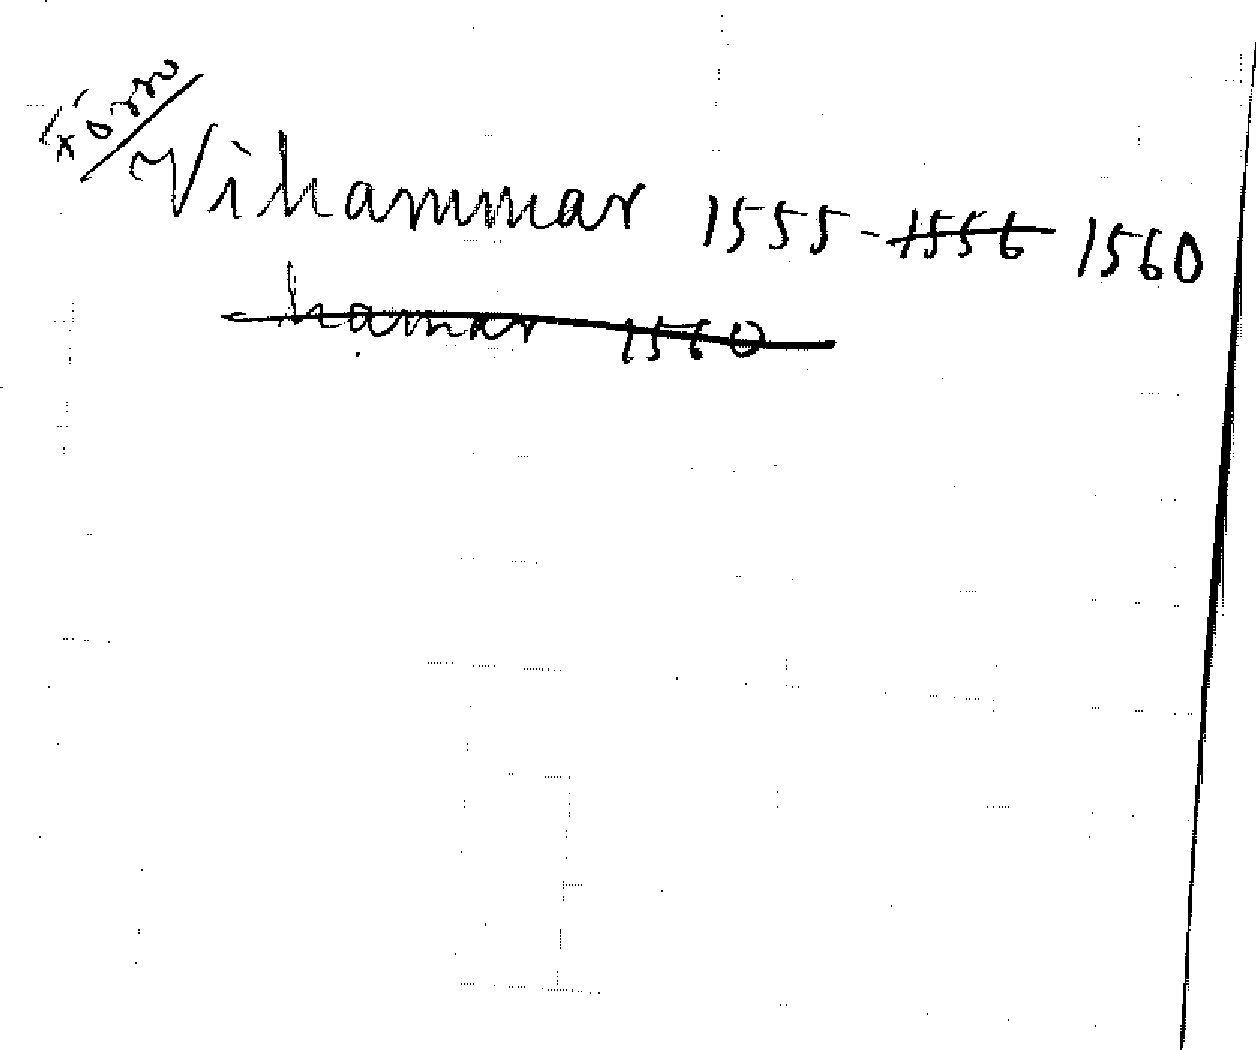 Vihammar 1555-1556 1560
hamar 1560